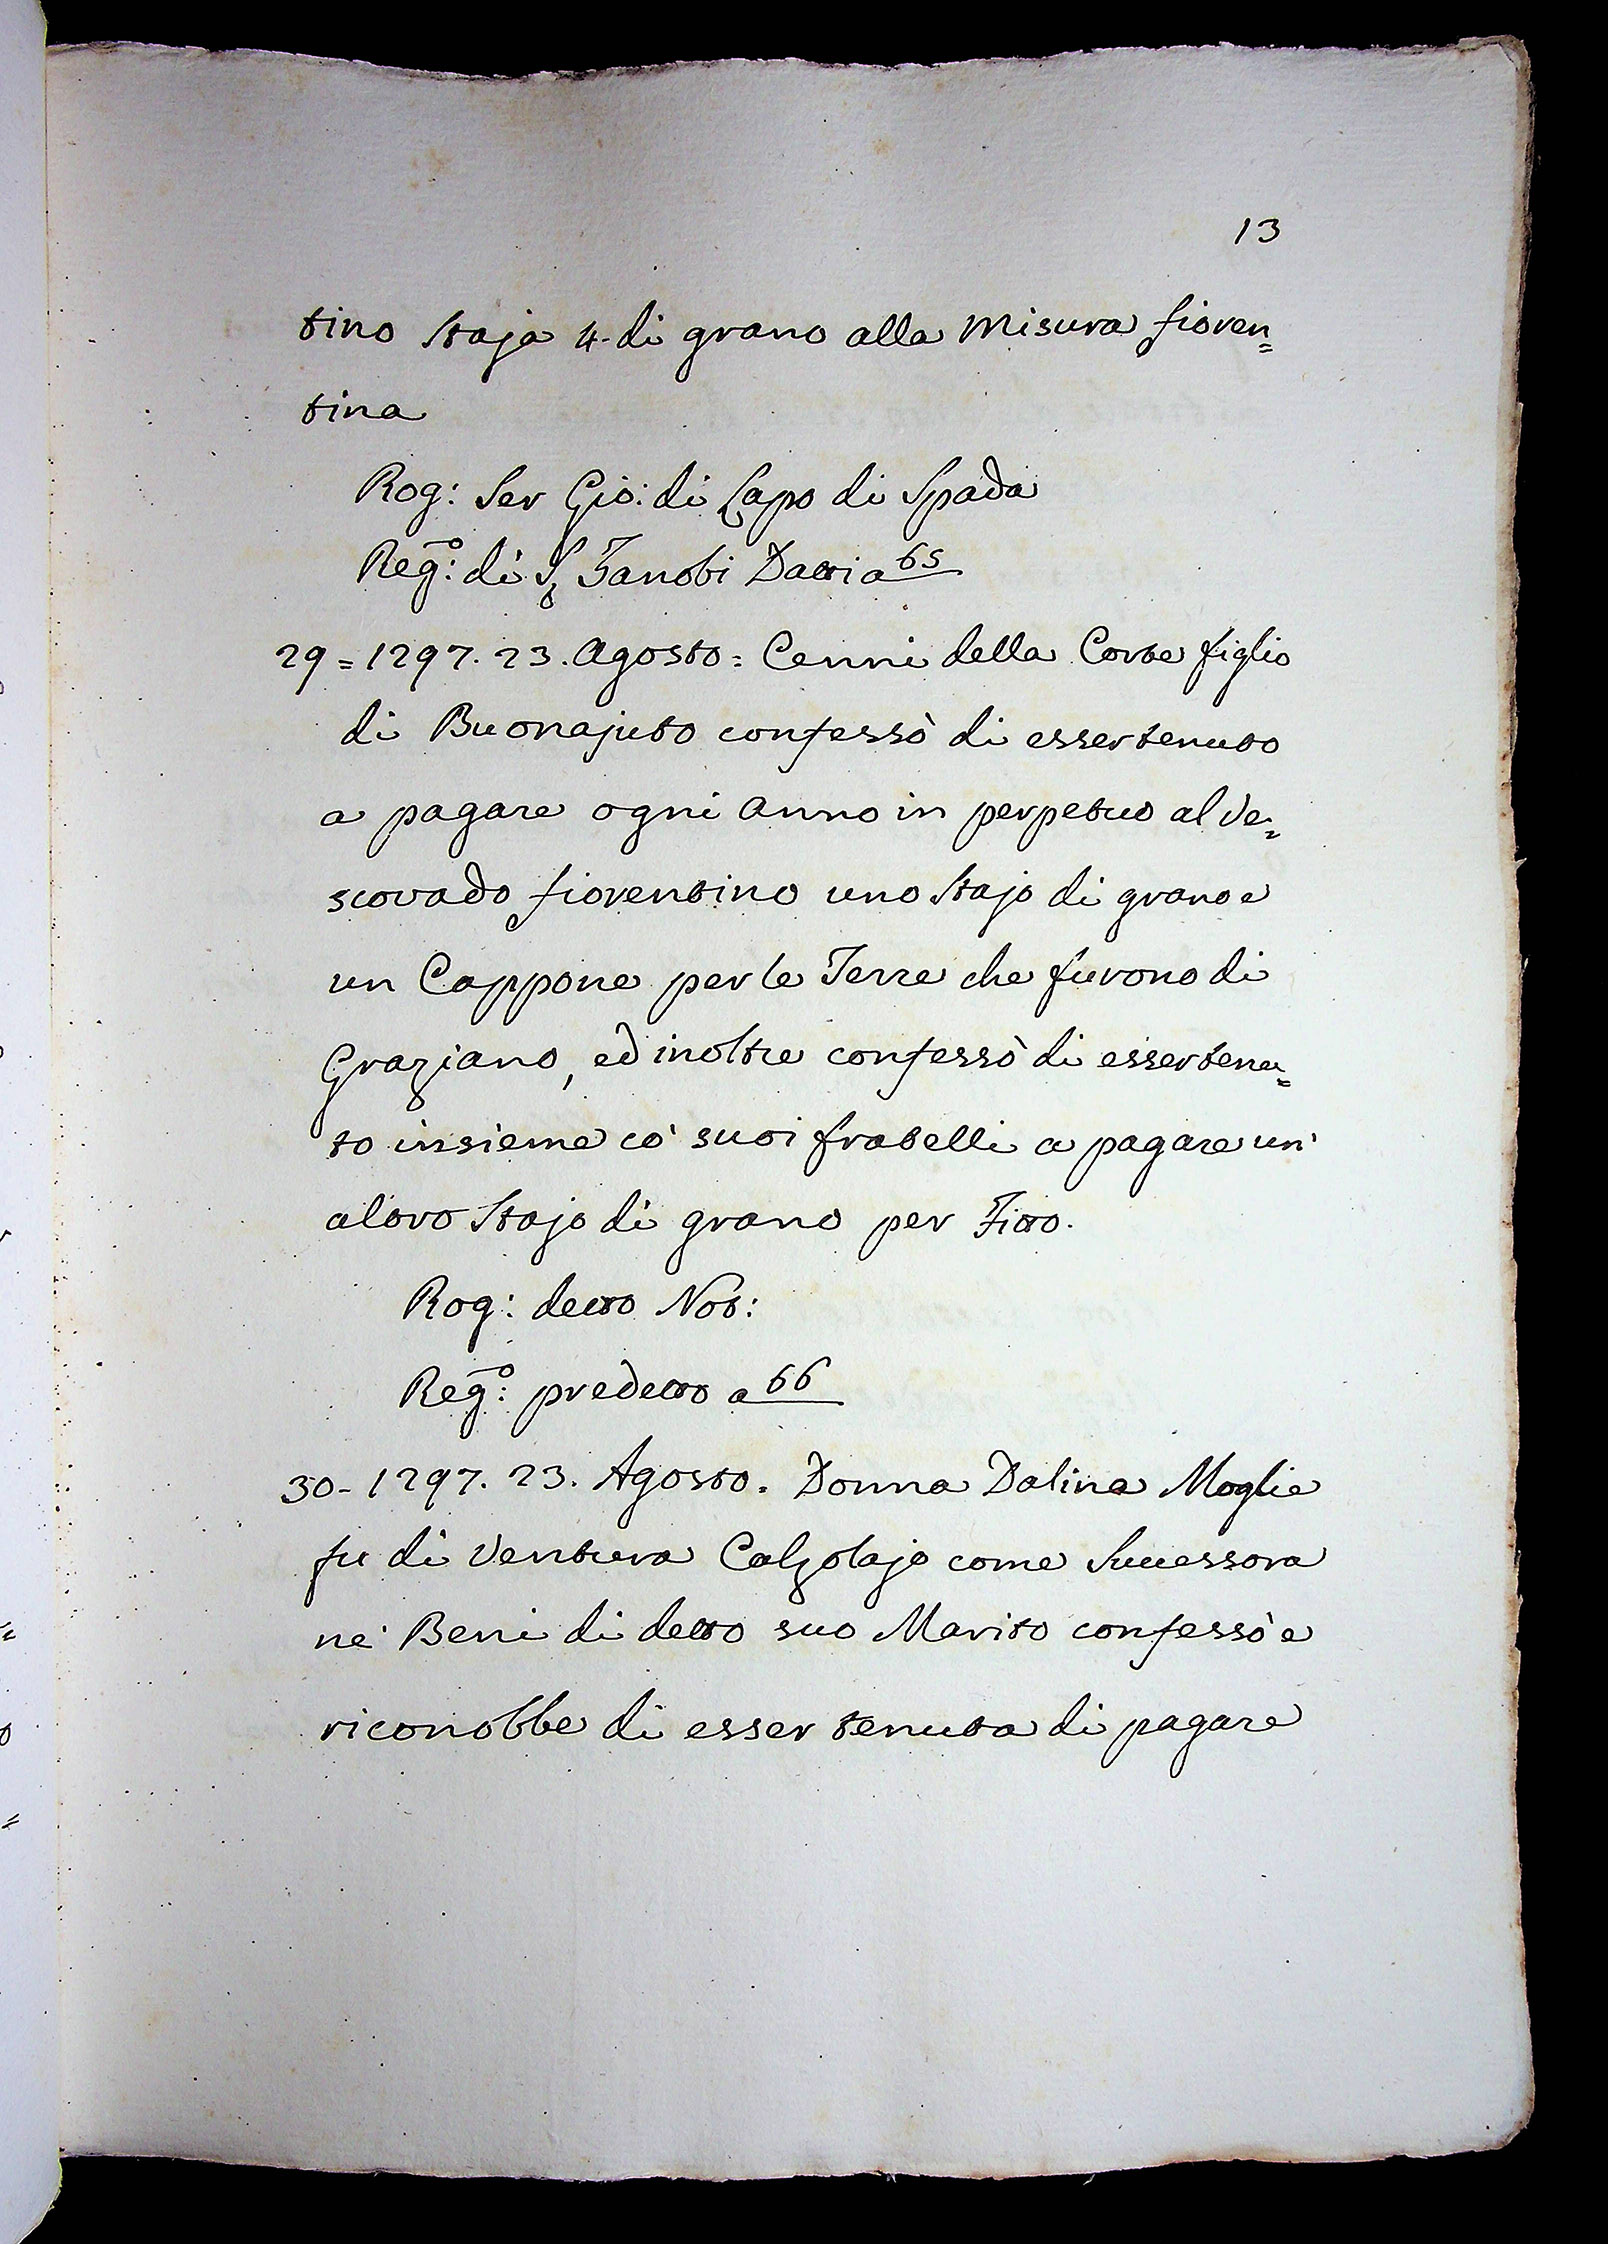 13
tino Staja 4. di grano alla Misura fioren=
tina
Rog: Ser Gio: di Lapo di Spada
Reg:º di S. Zanobi Datti a 65
29 = 1297. 23. Agosto = Cenni della Corte figlio
di Buonajuto confessò di esser tenuto
a pagare ogni Anno in perpetuo al Ve=
scovado fiorentino uno Stajo di grano e
un Cappone per le Terre che furono di
Graziano, ed inoltre confessò di esser tenu=
to insieme co' suoi fratelli a pagare un'
altro Stajo di grano per Fitto.
Rog: detto Not:
Reg:º predetto a 66
30 - 1297. 23. Agosto. Donna Dalina Moglie
fu di Ventura Calzolajo come Successora
ne' Beni di detto suo Marito confessò e
riconobbe di esser tenuta di pagare